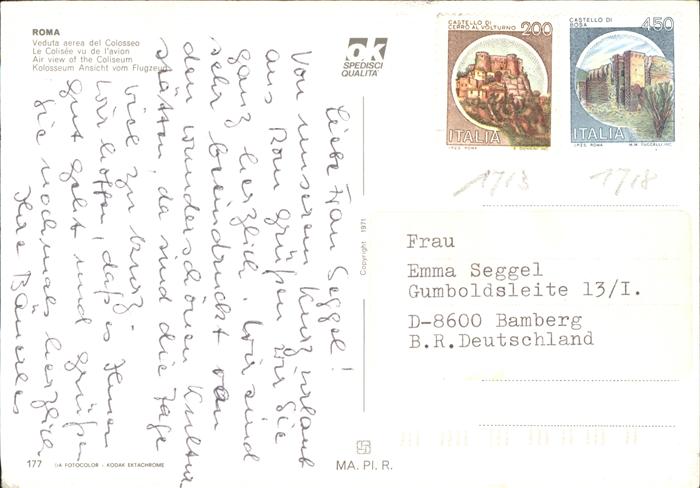 ROMA
Veduta aerea del Colosseo
Le Colisée vu de l'avion
Air view of the Coliseum
Kolosseum Ansicht vom Flugzeug
OK
SPEDISCI
QUALITA'
CASTELLO DI
CERRO AL VOLTURNO
200
ITALIA
I.P.Z.S. ROMA
CASTELLO DI
BOSA
450
ITALIA
I.P.Z.S. ROMA
M.M. TUCCELLI INC.
1713
1718
Liebe Frau Seggel!
Von unserem Kurzurlaub
aus Rom grüßen wir Sie
ganz herzlich. Wir sind
sehr beeindruckt von
den wunderschönen Kultur
stätten, da sind die Tage
viel zu kurz.
Wir hoffen, daß es Ihnen
gut geht und grüßen
Sie nochmals herzlich
Ihre
Copyright 1971
Frau
Emma Seggel
Gumboldsleite 13/I.
D-8600 Bamberg
B.R.Deutschland
177
FOTOCOLOR - KODAK EKTACHROME
MA. PI. R.